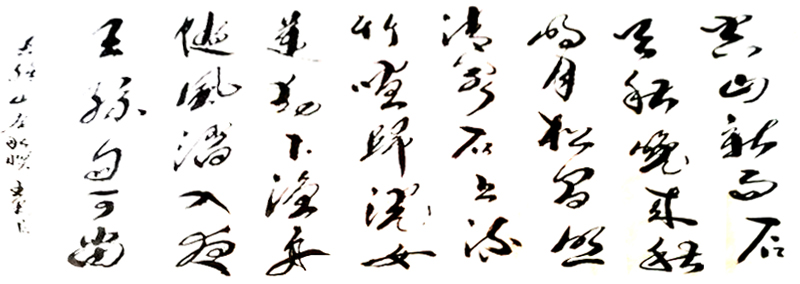 空山新雨后
天晚来秋
明月松间照
清泉石上流
竹喧歸浣女
莲动下渔舟
随風潛入夜
王孫自可留
王維山居秋暝